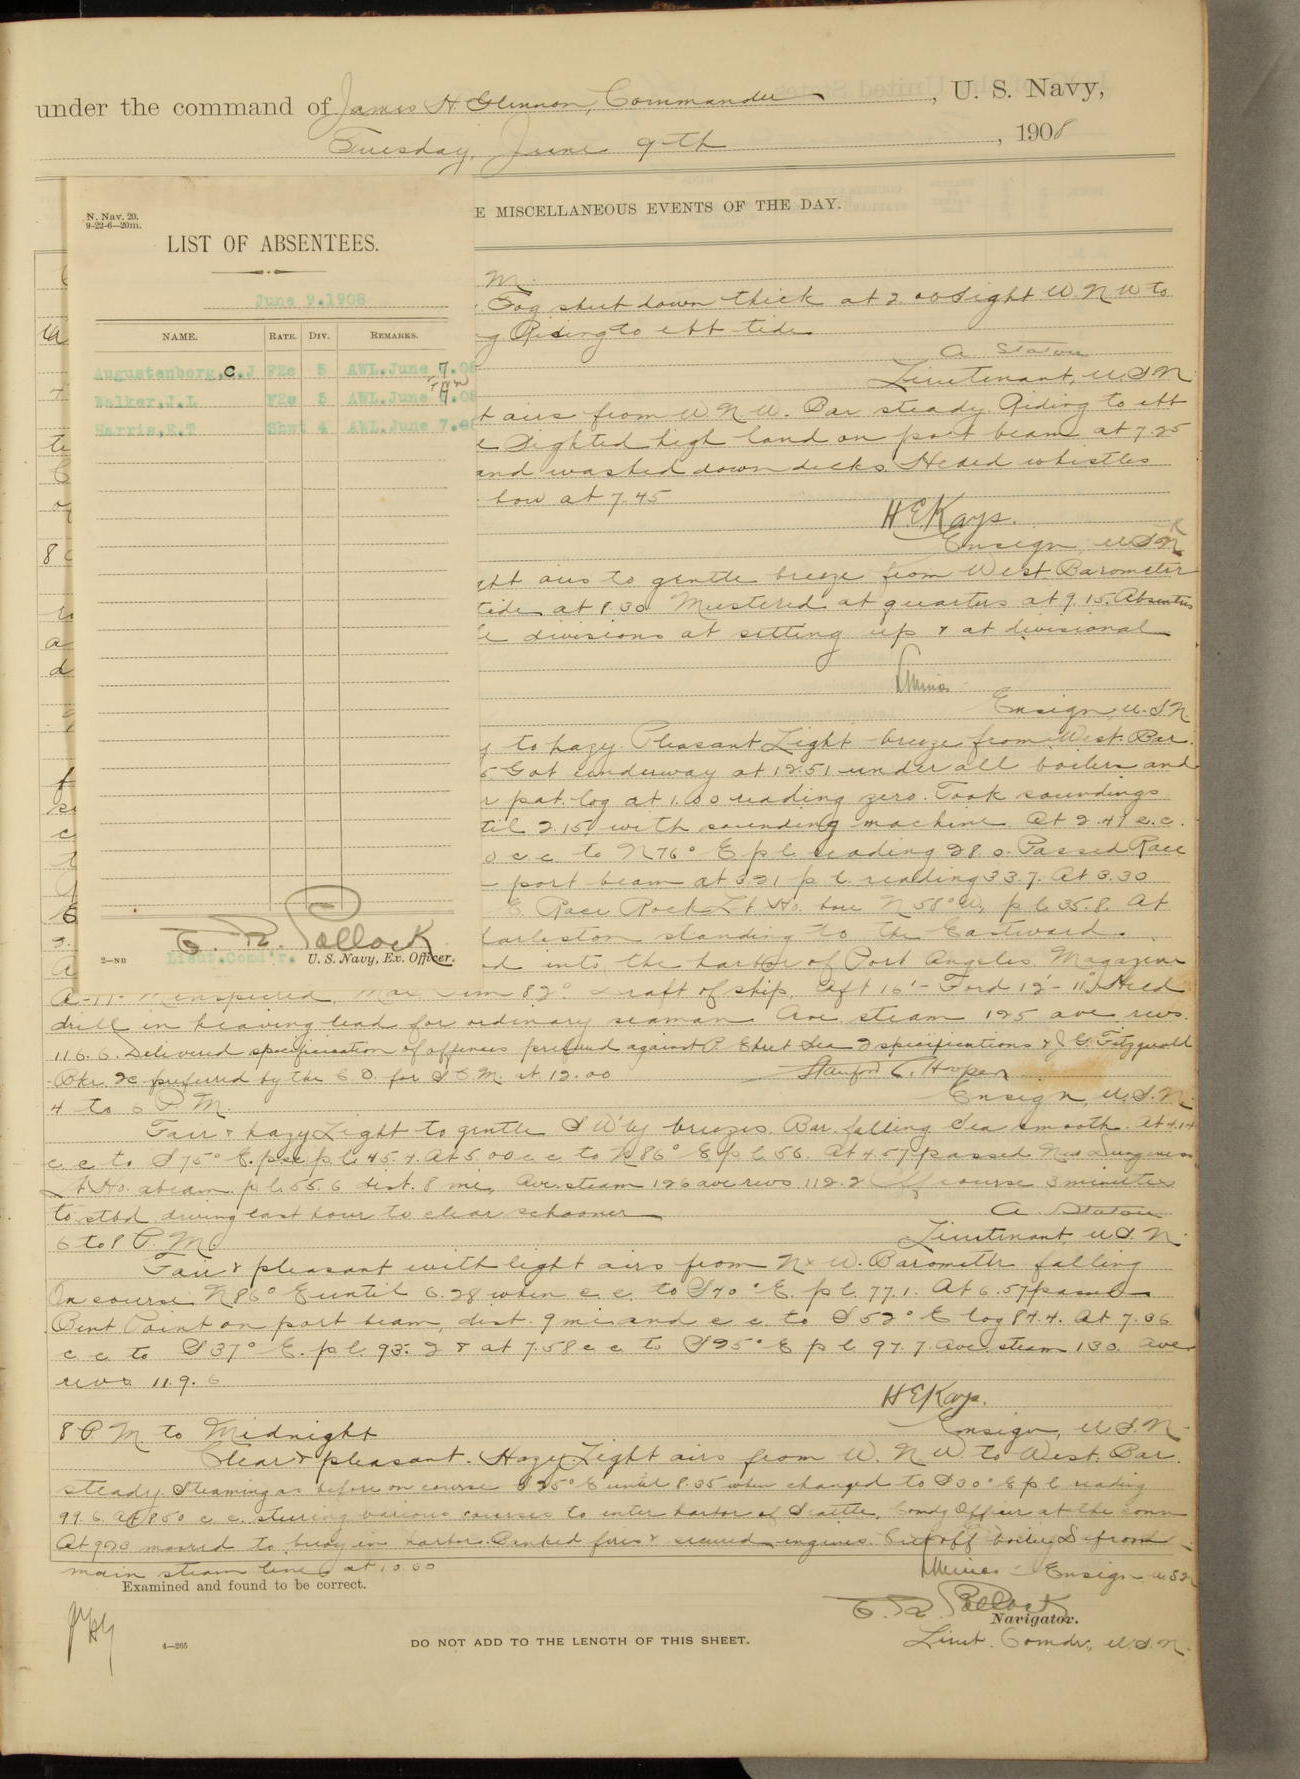 under the command of James H Glennon, Commander, U. S. Navy,
Tuesday, June 9th, 1908
N. Nav. 20.
9-22-6—20m.
LIST OF ABSENTEES.
June 9.1908
NAME. RATE. DIV. REMARKS.
Augustenborg,C.J F2c 5 AWL.June 7.08
Walker,J.L F2c 5 AWL.June 9.08
Harris,E.T 4 AWL.June 7.08
E. R. Pollock
Lieut.Comd'r. U. S. Navy, Ex. Officer.
2—NB
E MISCELLANEOUS EVENTS OF THE DAY.
M.
Fog shut down thick at 2.00 Light W N W to
g Riding to ebb tide
A Staton
Lieutenant, U.S.N
t airs from W. N. W. Bar steady Riding to ebb
e Sighted high land on port beam at 7.25
and washed down decks. Heard whistles
bow at 7.45
H E Kays.
Ensign, U.S.N
ght airs to gentle breeze from West Barometer
tide at 8.30 Mustered at quarters at 9.15. Absentees
divisions at setting up & at divisional
Ensign, U.S.N.
y to hazy. Pleasant Light breeze from West. Bar.
5 Got underway at 12.51 under all boilers and
r pat. log at 1.00 reading zero. Took soundings
til 2.15, with sounding machine. At 2.49 c.c.
0 c.c. to N 76° E p l reading 28.0. Passed Race
port beam at 3.21 p l. reading 33.7. At 3.30
E. Race Rock Lt Ho. bore N 58° W, p l 35.8. At
harleston standing to the Eastward.
d into the harbor of Port Angeles. Magazine
inspected. Max tem 82°. Draft of ship, Aft 16'- Ford 12'-11". Held
drill in heaving lead for ordinary seaman. Ave steam 125 ave revs.
116.6. Delivered specification of offenses preferred against P. Ehret Sea 2 specifications & J G. Fitzgerald
Bkr. 2c preferred by the C.O. for S C M. at 12.00
Stanford C. Hooper
Ensign, U.S.N.
4 to 6 P. M.
Fair & hazy Light to gentle S W'ly breezes. Bar. falling Sea smooth. At 4.14
c c to S 75° E. psc p l 45.4. At 5.00 c c to N 86° E p l 56. At 4.57 passed New Dungeness
Lt Ho. abeam. p l 55.6 dist. 8 mi, Ave. steam 126 ave revs. 112.2 Off course 3 minutes
to stbd. during last hour to clear schooner
A. Staton
Lieutenant, U.S.N.
6 to 8 P. M.
Fair & pleasant with light airs from N & W. Barometer falling
On course N 86° E until 6.28 when c c. to S 70° E. p l. 77.1. At 6.57 passed
Point on port beam, dist. 9 mi. and c c to S 52° E log 84.4. At 7.36
c c to S 37° E. p l. 93.2 & at 7.58 c c to S 25° E p l 97.7. Ave. steam 130. Ave
revs 119.6
H E Kays.
Ensign, U.S.N.
8 P. M. to Midnight
Clear & pleasant. Hazy Light airs from W. N W. to West. Bar.
steady. Steaming as before on course S 25° E until 8.05 when changed to S 30° E p l reading
99.6. At 8.50 c c. steering various courses to enter harbor of Seattle, Comdg Officer at the conn
At 9.23 moored to buoy in harbor. Banked fires & secured engines. Cut off boiler D from
main steam line at 10.00
Ensign U S N
Examined and found to be correct.
E. R. Pollock
Navigator.
Lieut. Comdr., U.S.N.
4—265
DO NOT ADD TO THE LENGTH OF THIS SHEET.